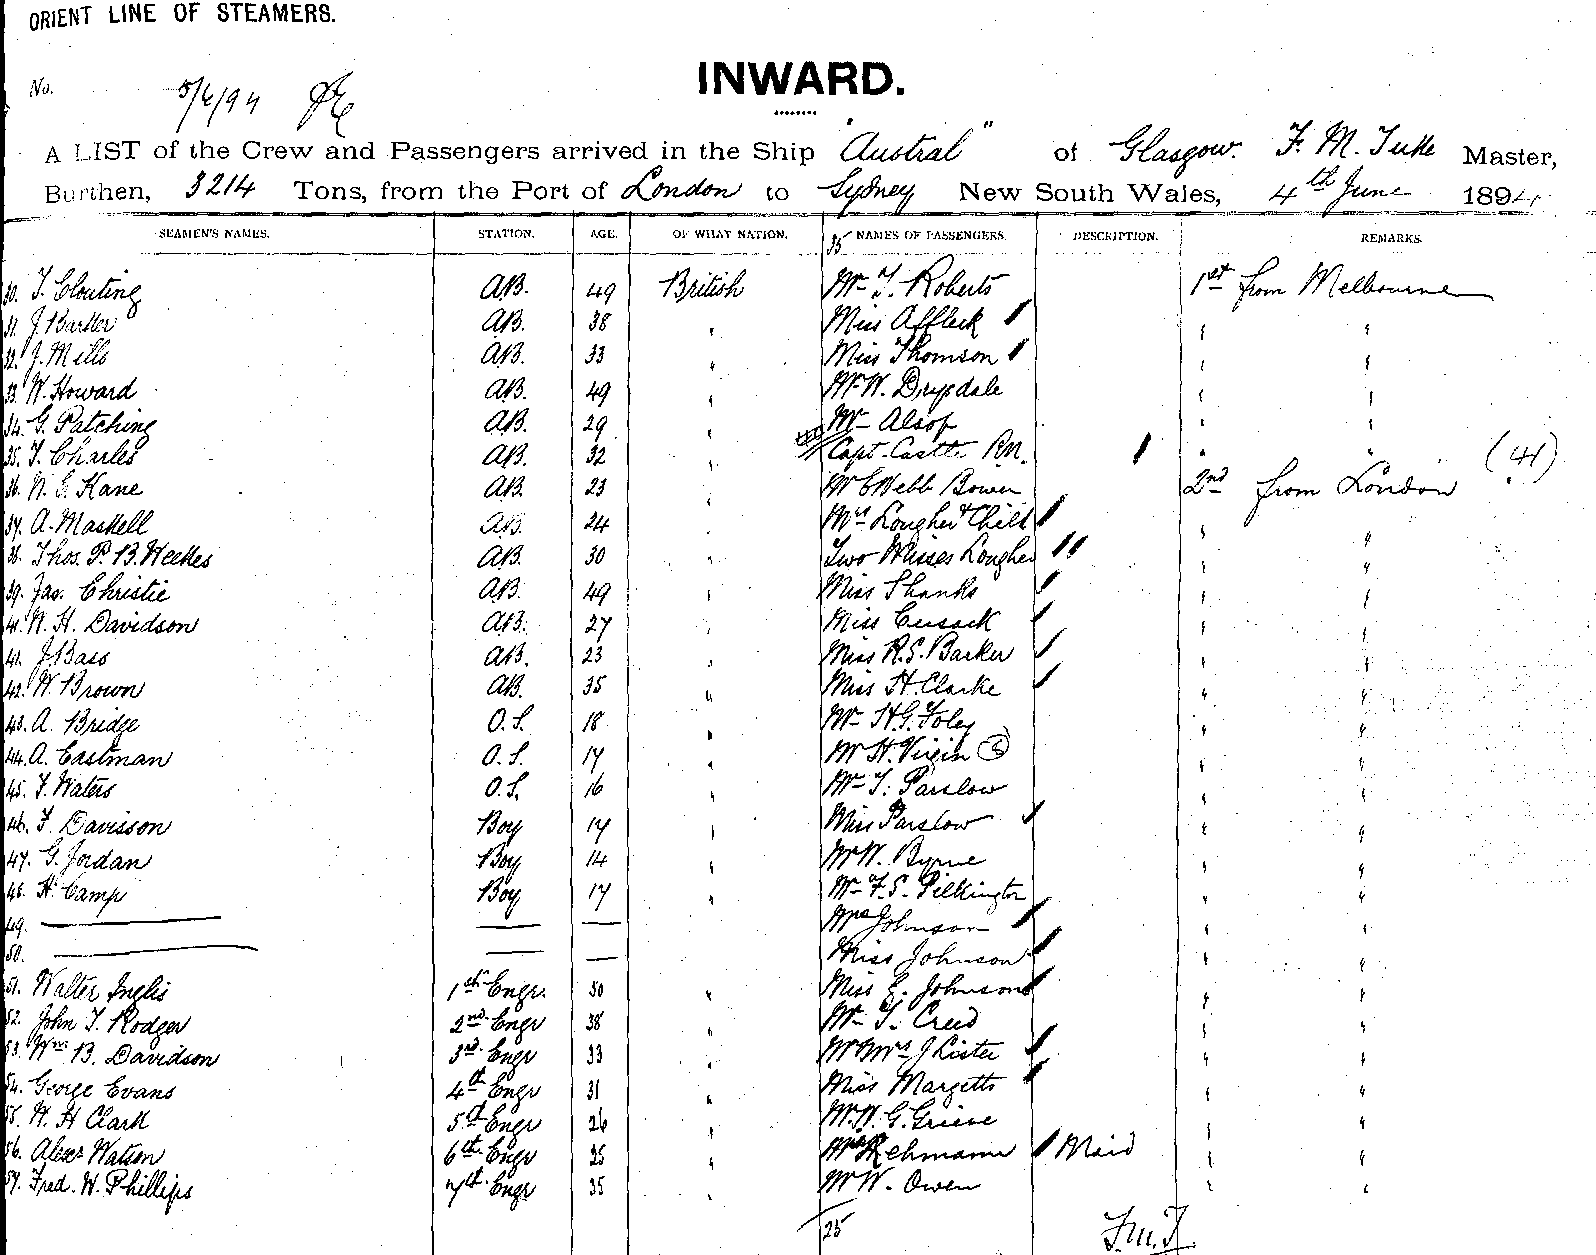 ORIENT LINE OF STEAMERS.
INWARD.
No. 5/6/94
A LIST of the Crew and Passengers arrived in the Ship "Austral" of Glasgow. F. M. Tuke Master,
Burthen, 3214 Tons, from the Port of London to Sydney New South Wales, 4th June 1894
SEAMEN'S NAMES. STATION. AGE. OF WHAT NATION. 35 NAMES OF PASSENGERS. DESCRIPTION. REMARKS.
30. T. Clouting A.B. 49 British Mr T. Roberts 1st from Melbourne
31. J Barker A.B. 38 " Miss Affleck " "
32. J. Mills A.B. 33 " Miss Thomson " "
33. W. Howard A.B. 49 " Mr W. Drysdale " "
34. G. Patching A.B. 29 " Mr Alsop " "
35. T. Charles A.B. 32 " Capt. Castle R.N. " " (41)
36. N. E. Kane A.B. 23 " Mr C Webb Bowen 2nd from London
37. A. Maskell A.B. 24 " Mrs Lougher & Child " "
38. Thos. P. B. Weekes A.B. 30 " Two Misses Lougher " "
39. Jas. Christie A.B. 49 " Miss Shanks " "
41. W. H. Davidson A.B. 27 " Miss Cusack " "
41. J. Bass A.B. 23 " Miss R. E. Barker " "
42. W. Brown A.B. 35 " Miss H. Clarke " "
43. A. Bridge O.S. 18 " Mr H. G. Foley " "
44. A. Eastman O.S. 17 " Mr H. Virgin " "
45. T. Waters O.S. 16 " Mr T. Parslow " "
46. F. Davisson Boy 17 " Miss Parslow " "
47. G. Jordan Boy 14 " Mr W. Byrne " "
48. H. Camp Boy 17 " Mr F. S. Pilkington " "
49. Mrs Johnson " "
50. Miss Johnson " "
51. Walter Inglis 1st Engr. 50 " Miss E. Johnson " "
52. John T. Rodger 2nd Engr 38 " Mr T. Creed " "
53. Wm B. Davidson 3rd Engr 33 " Mr Mrs J Lister " "
54. George Evans 4th Engr 31 " Miss Margetts " "
55. W. H Clark 5th Engr 26 " Mr W. G. Grieve " "
56. Alexr Watson 6th Engr 25 " Mrs Rehmann Maid " "
57. Fred. W. Phillips 7th Engr 35 " Mr W. Owen " "
25 F.M.T.